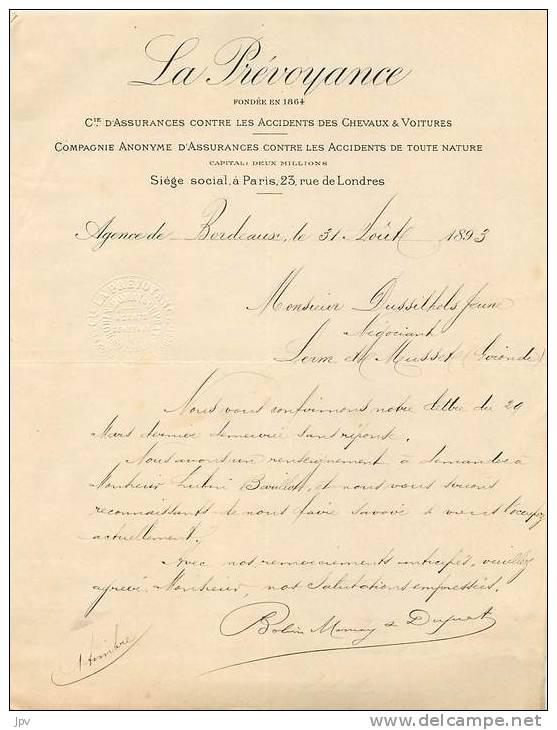 La Prévoyance
FONDÉE EN 1864
CIE. D'ASSURANCES CONTRE LES ACCIDENTS DES CHEVAUX & VOITURES
COMPAGNIE ANONYME D'ASSURANCES CONTRE LES ACCIDENTS DE TOUTE NATURE
CAPITAL: DEUX MILLIONS
Siége social, à Paris, 23, rue de Londres
Agence de Bordeaux, le 31 Août 1893
LA PREVOYANCE
Monsieur Dussilhols Jeune
Négociant
Lerm et Musset (Gironde)
Nous vous confirmons notre lettre du 29
Mars dernier demeurée sans réponse.
Nous avons un renseignement à demander à
Monsieur, et nous vous serions
reconnaissants de nous faire savoir si
actuellement.
Avec nos remerciements anticipés, veuillez
agréer, Monsieur, nos Salutations empressées.
1 timbre
www.delcampe.net
jpv